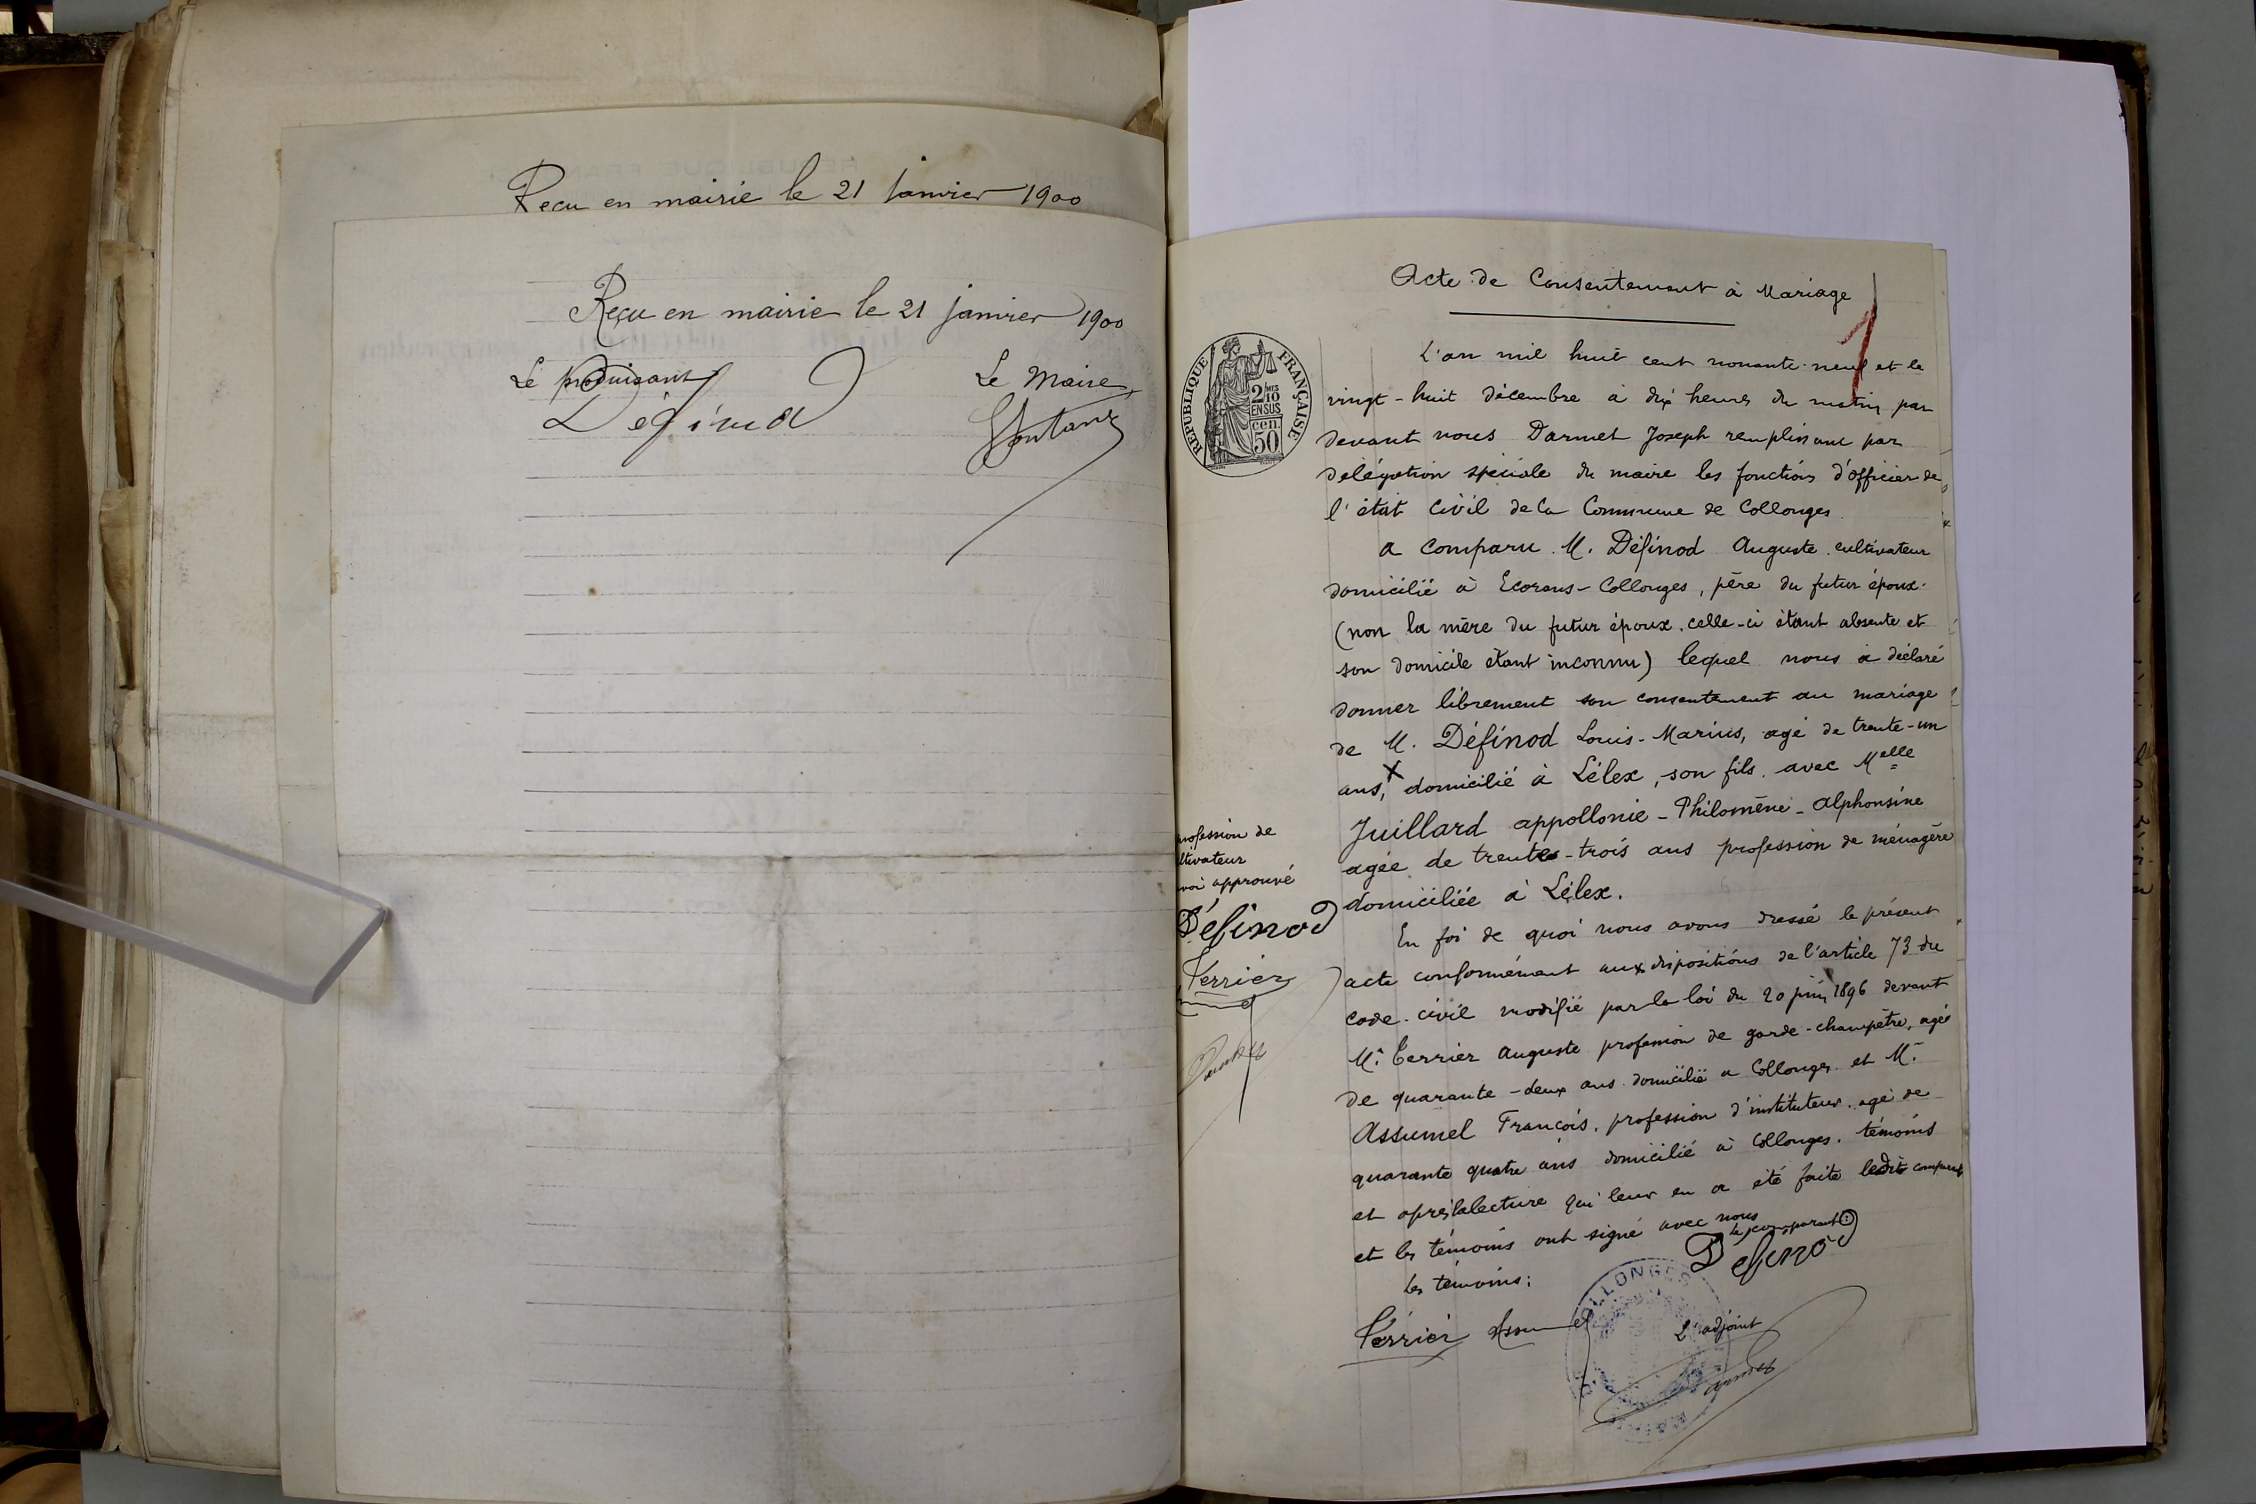 Reçu en mairie le 21 janvier 1900
Reçu en mairie le 21 janvier 1900
Le produisant
Le Maire
Définod
Fontany
Acte de Consentement à Mariage
1
RÉPUBLIQUE FRANÇAISE
2/10
EN SUS
50
cen.
L'an mil huit cent nonante-neuf et le
vingt-huit décembre à dix heures du matin par
devant nous Darmet Joseph remplissant par
délégation spéciale du maire les fonctions d'officier de
l'état civil de la Commune de Collonges
a comparu M. Définod Auguste cultivateur
domicilié à Ecorans-Collonges, père du futur époux.
(non la mère du futur époux. celle-ci étant absente et
son domicile étant inconnu) lequel nous a déclaré
donner librement son consentement au mariage
de M. Définod Louis-Marius, agé de trente-un
ans, X domicilié à Lélex, son fils. avec Melle
Juillard appollonie-Philomène-Alphonsine
agée de trente-trois ans profession de ménagère
domiciliée à Lélex.
En foi de quoi nous avons dressé le présent
acte conformément aux dispositions de l'article 73 du
code civil modifié par la loi du 20 juin 1896 devant
Mr. Terrier Auguste profession de garde-champêtre, agé
de quarante-deux ans domicilié a Collonges et Mr.
Assumel François, profession d'instituteur. agé de
quarante quatre ans domicilié à Collonges. témoins
et après la lecture qui leur en a été faite ledit comparant
et les témoins ont signé avec nous
le comparant:
Définod
Les témoins:
Terrier Assumel
L'adjoint
Darmet
COLLONGES
profession de
ltivateur
voi approuvé
Définod
Terrier
Darmet